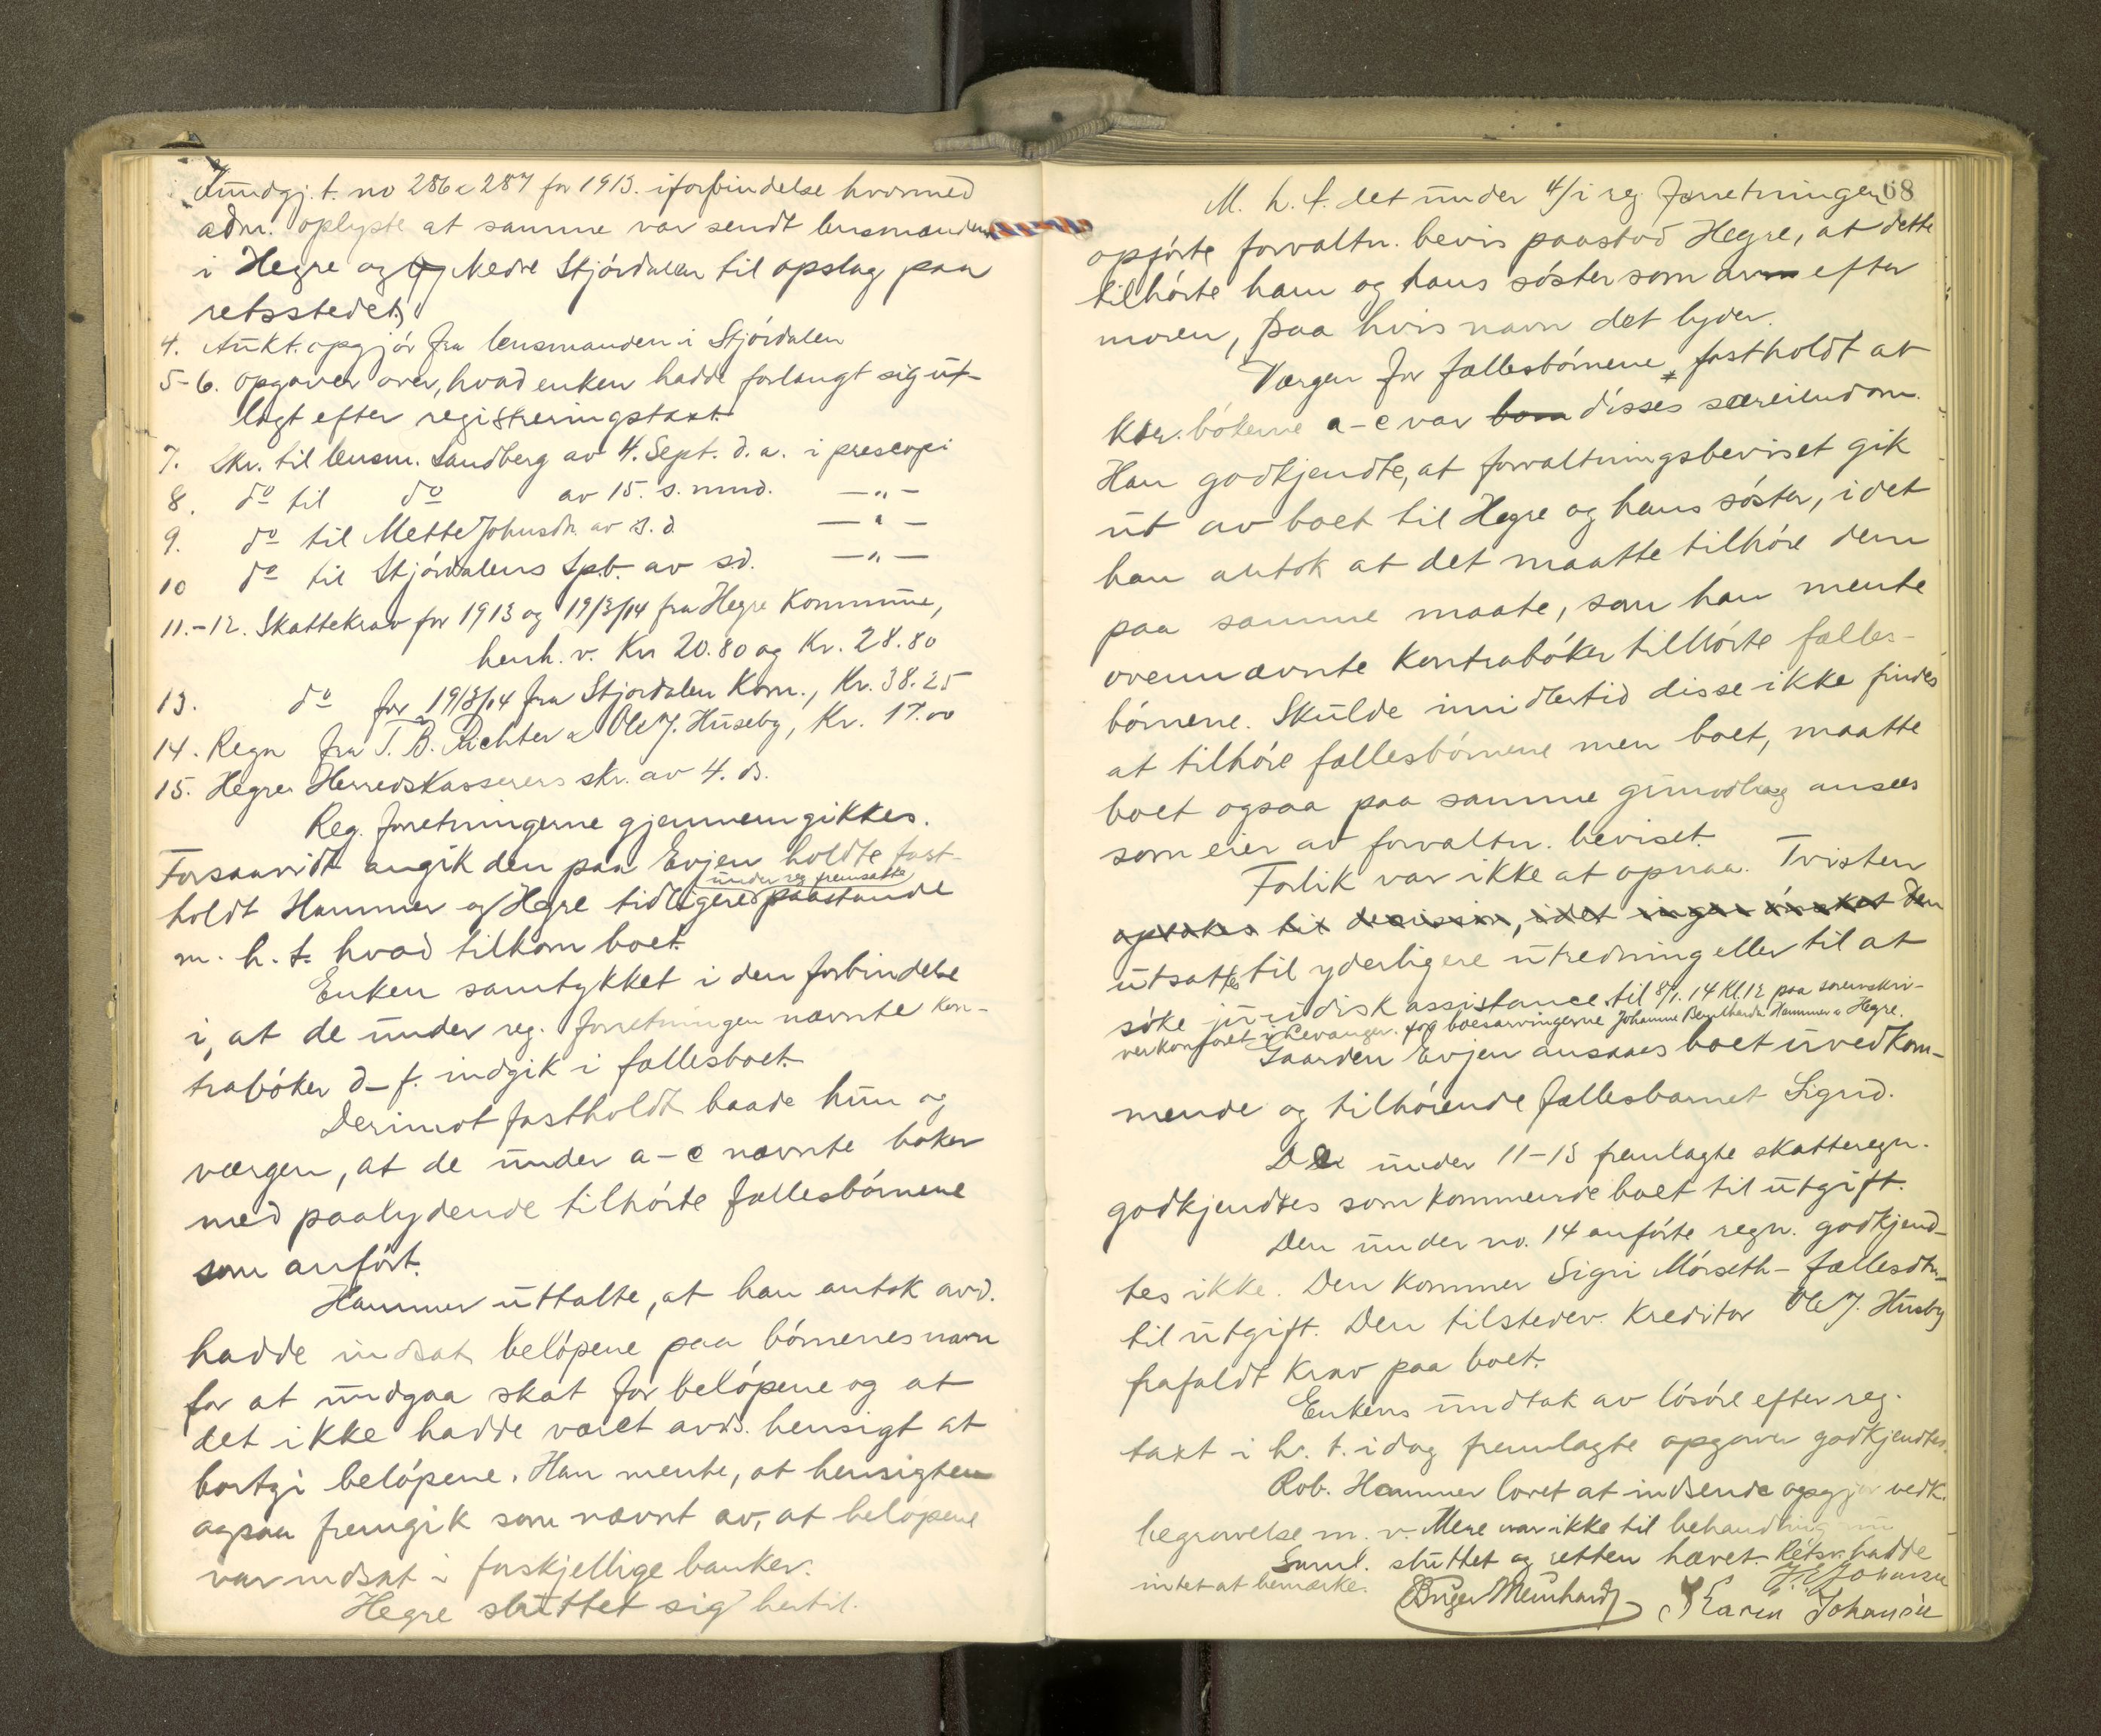 Kundgj. t. no 286 & 287 for 1913. iforbindelse hvormed
adm. oplyste at samme var sendt lensmændene
i Hegre og Nedre Stjórdalen til opslag paa
retsstedet.
4. Aukt. opgjór fra lensmanden i Stjórdalen
5-6. Opgaver over, hvad enken hadde forlangt sig ut-
lagt efter registreringstaxt.
7. Skr. til lensm. Sandberg av 4. Sept. d. a. i prescopi
8. do til do av 15. s. mnd. —„—
9. do til Mette Johnsdr. av s. d. —„—
10 do til Stjórdalens Spb. av sd. —„—
11.-12. Skattekrav for 1913 og 1913/14 fra Hegre Kommune,
henh. v. Kr. 20.80 og Kr. 28.80
13. do for 1913/14 fra Stjordalen Kom., Kr. 38.25
14. Regn fra T. B. Richter & Ole J. Huseby, Kr. 17.00
15. Hegre Herredskasserers skr. av 4. ds.
Reg. forretningerne gjennemgikkes.
Forsaavidt angik den paa Evjen holdte fast-
under reg. fremsatte
holdt Hammer og Hegre tidligere paastande
m. h. t. hvad tilkom boet.
Enken samtykket i den forbindelse
i, at de under reg. forretningen nævnte kon-
trabóker d-f. indgik i fællesboet.
Derimot fastholdt baade hun og
værgen, at de under a-c nævnte bóker
med paalydende tilhórte fællesbórnene
som anfórt.
Hammer uttalte, at han antok avd.
hadde indsat belópene paa bórnenes navn
for at undgaa skat for belópene og at
det ikke hadde været avds. hensigt at
bortgi belópene. Han mente, at hensigten
ogsaa fremgik som nævnt av, at belópene
var indsat i forskjellige banker.
Hegre sluttet sig hertil.
68
M. h. t. det under 4/i reg. forretningen
opfórte forvaltn. bevis paastod Hegre, at dette
tilhórte ham og hans sóster som arv efter
moren, paa hvis navn det lyder.
Værgen for fællesbórnene fastholdt at
ktr. bókerne a-c var bom disses særeiendom.
Han godkjendte, at forvaltningsbeviset gik
ut av boet til Hegre og hans sóster, idet
han antok at det maatte tilhóre dem
paa samme maate, som han mente
ovennævnte Kontrabóker tilhórte fælles-
bórnene. Skulde imidlertid disse ikke findes
at tilhóre fællesbórnene men boet, maatte
boet ogsaa paa samme grundlag ansees
som eier av forvaltn. beviset.
Forlik var ikke at opnaa. Tvisten
optakes til decision, idet ingen ónsket den
utsattes til yderligere utredning eller til at
sóke juridisk assistance til 8/1. 14 Kl. 12 paa sorenskri-
verkontoret i Levanger. for boesarvingerne Johanna Hammer & Hegre.
Gaarden Evjen ansaaes boet uvedkom-
mende og tilhórende fællesbarnet Sigrid.
De under 11-13 fremlagte skatteregn.
godkjendtes som kommende boet til utgift.
Den under no. 14 anfórte regn. godkjend-
tes ikke. Den kommer Sigri Mórseth - fællesdtr.
til utgift. Den tilstedev. Kreditor Ole J. Husby
frafaldt Krav paa boet.
Enkens undtak av lósóre efter reg.
taxt i h. t. idag fremlagte opgaver godkjendtes.
Rob. Hammer lovet at indsende opgjór vedk.
begravelse m. v. Mere var ikke til behandling nu
Saml. sluttet og retten hævet. Retsv. hadde
intet at bemærke.
Birger Meinhardt
J. E. Johansen
Karen Johansen